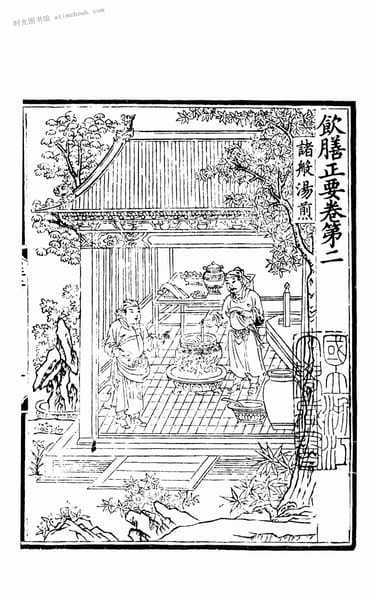 时光图书馆 atimebook.com
飲膳正要卷第二
諸般湯煎